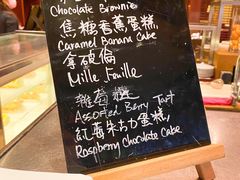 Chocolate Brownier
焦糖香蕉蛋糕
Caramel Banana Cake
拿破倫
Mille Feuille
雜莓撻
Assorted Berry Tart
紅莓朱古力蛋糕
Raspberry Chocolate Cake